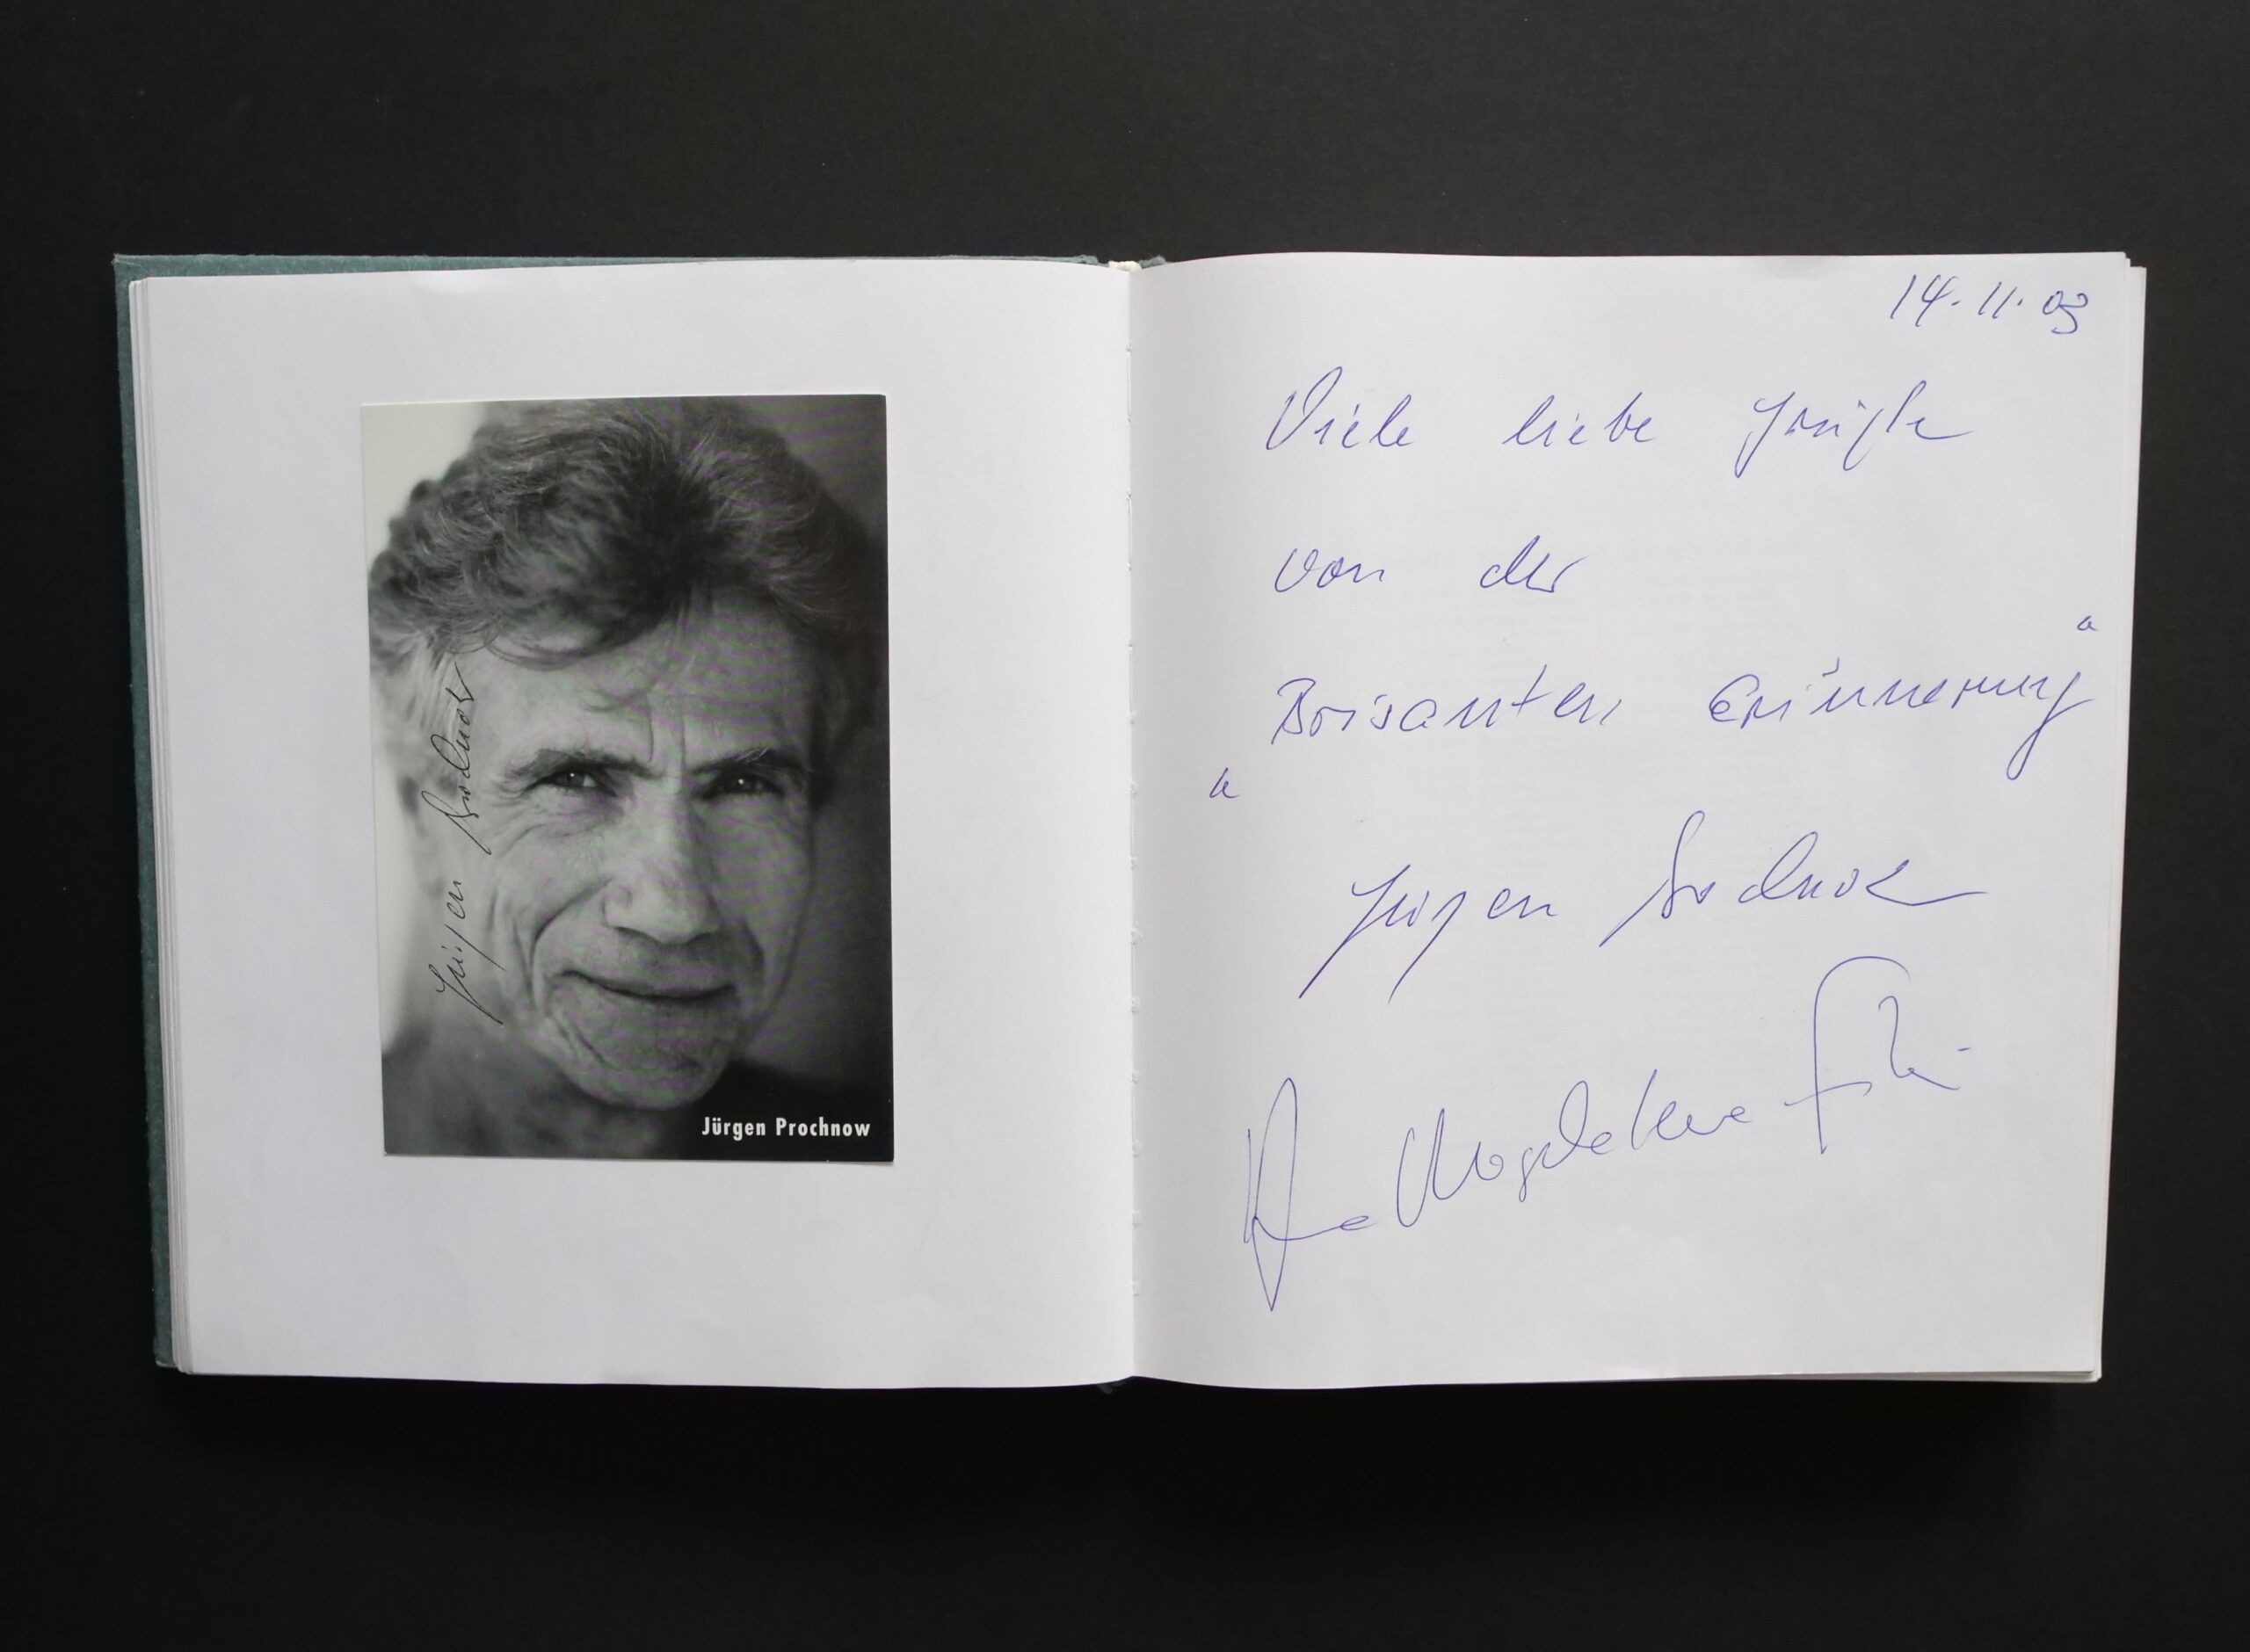 Jürgen Prochnow
Jürgen Prochnow
14.11.03
Viele liebe Grüße
von der
„Brisanten Erinnerung“
Jürgen Prochnow
Magdalena